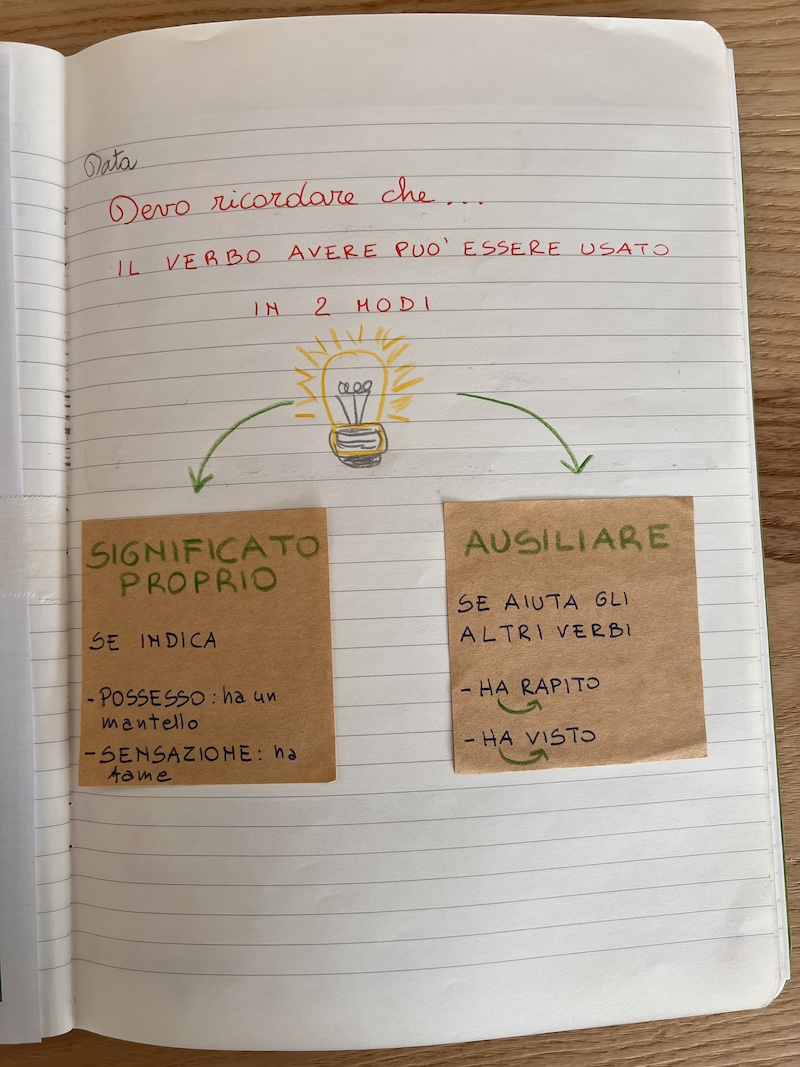 Data
Devo ricordare che...
IL VERBO AVERE PUO' ESSERE USATO
IN 2 MODI
SIGNIFICATO
PROPRIO
SE INDICA
- POSSESSO: ha un
mantello
- SENSAZIONE: ha
fame
AUSILIARE
SE AIUTA GLI
ALTRI VERBI
- HA RAPITO
- HA VISTO